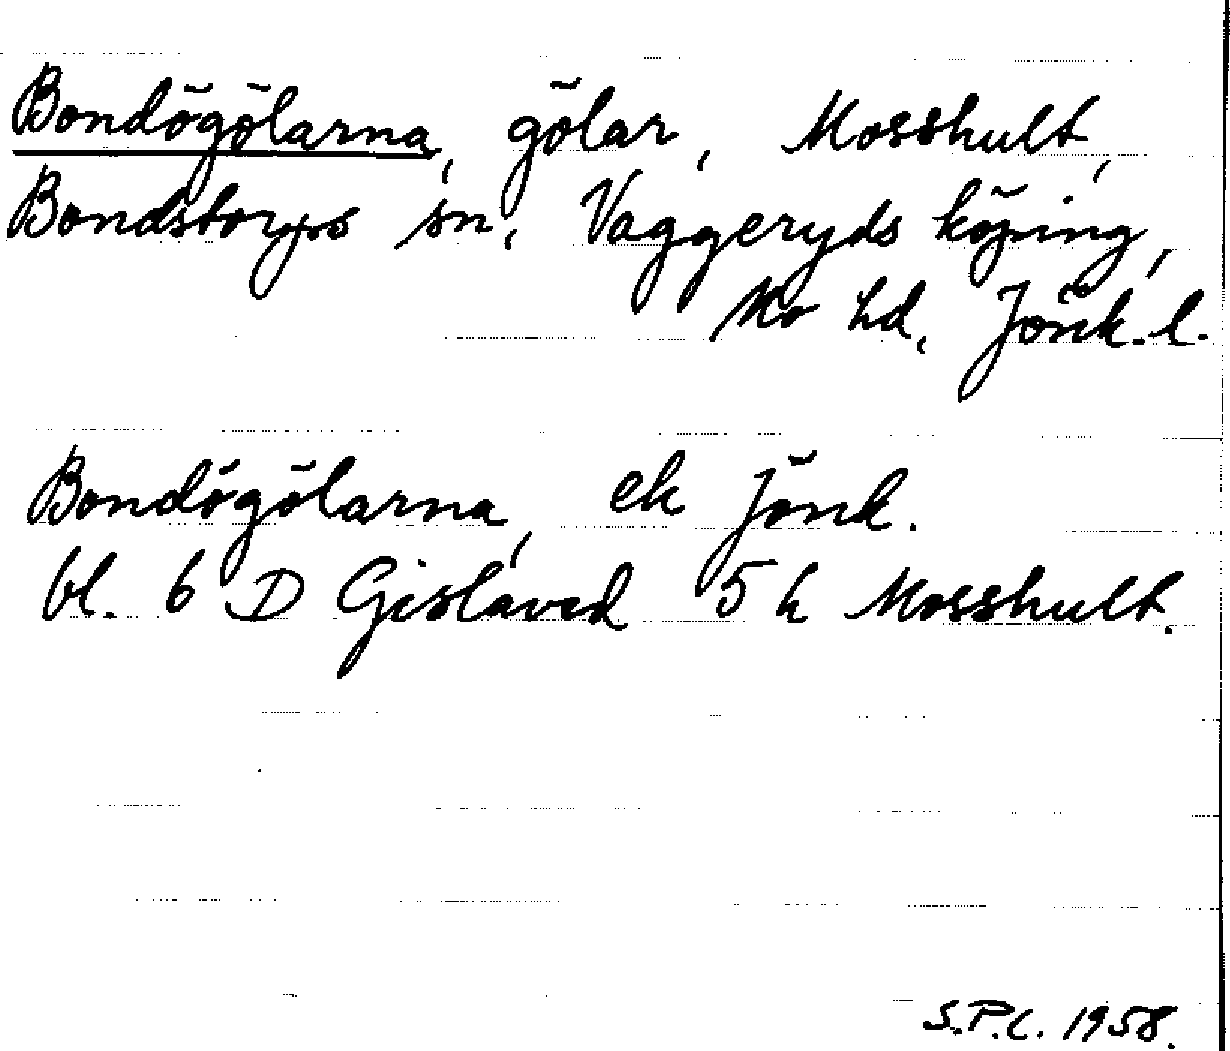 Bondögölarna, gölar, Mosshult,
Bondstorps sn, Vaggeryds köping,
Mo hd, Jönk. l.
Bondögölarna, ek Jönk.
bl. 6 D Gislaved 5 h Mosshult.
S.P.C. 1958.